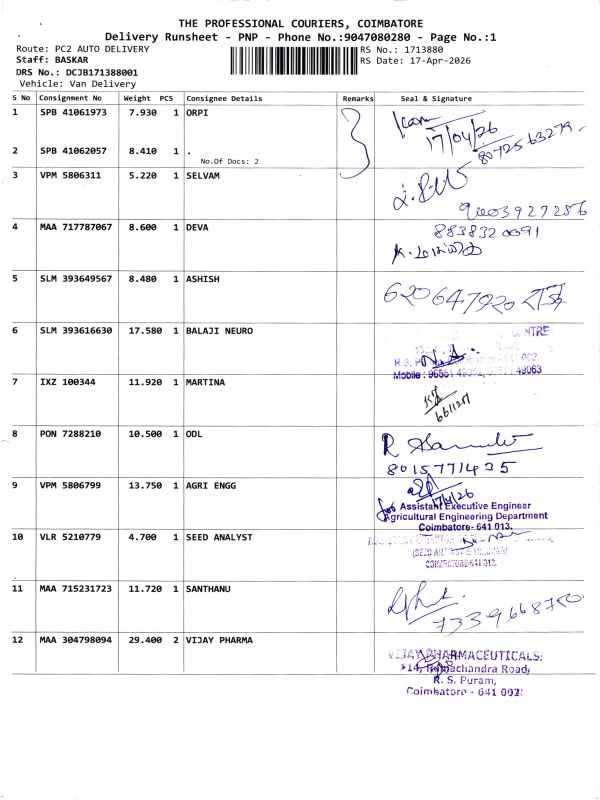 THE PROFESSIONAL COURIERS, COIMBATORE
Delivery Runsheet - PNP - Phone No.:9047080280 - Page No.:1
Route: PC2 AUTO DELIVERY
RS No.: 1713880
Staff: BASKAR
RS Date: 17-Apr-2026
DRS No.: DCJB171388001
Vehicle: Van Delivery
S No Consignment No Weight PCS Consignee Details Remarks Seal & Signature
1 SPB 41061973 7.930 1 ORPI
17/04/26
8072563279
2 SPB 41062057 8.410 1 .
No.Of Docs: 2
3 VPM 5806311 5.220 1 SELVAM
9003927286
4 MAA 717787067 8.600 1 DEVA 8838320091
5 SLM 393649567 8.480 1 ASHISH 620647920
6 SLM 393616630 17.580 1 BALAJI NEURO
Mobile : 49063
7 IXZ 100344 11.920 1 MARTINA
8 PON 7288210 10.500 1 ODL
8015771435
9 VPM 5806799 13.750 1 AGRI ENGG
17/4/26
for Assistant Executive Engineer
Agricultural Engineering Department
Coimbatore- 641 013.
10 VLR 5210779 4.700 1 SEED ANALYST
11 MAA 715231723 11.720 1 SANTHANU
7339668750
12 MAA 304798094 29.400 2 VIJAY PHARMA
VIJAY PHARMACEUTICALS
114, Ramachandra Road,
R. S. Puram,
Coimbatore - 641 002.